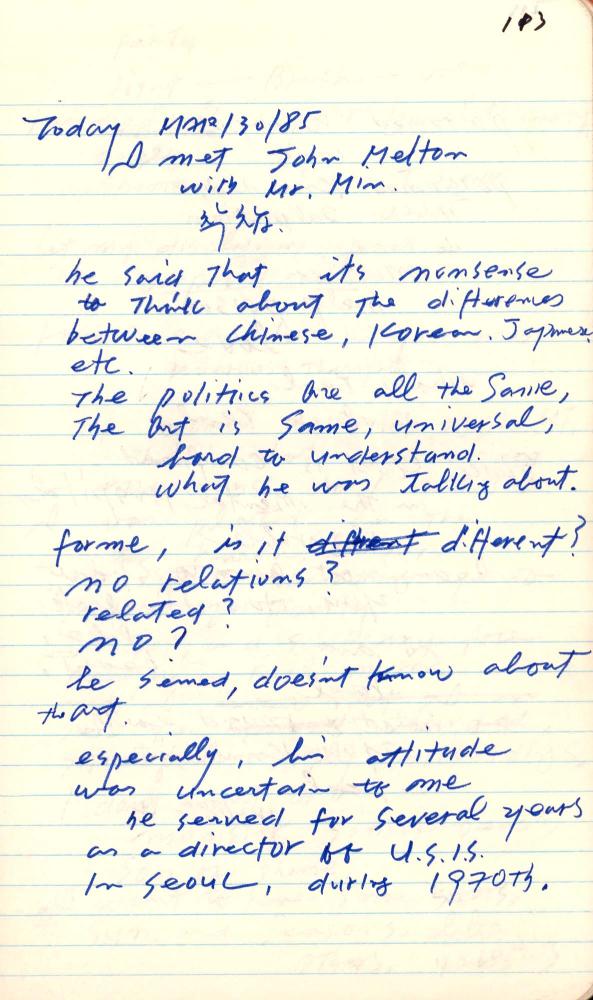 183
Today MAR/30/85
I met John Melton
with Mr. Min.
he said that its nonsense
to think about the differences
between Chinese, Korean. Japanese
etc.
The politics are all the Same,
The Art is Same, universal,
hard to understand.
what he was talking about.
for me, is it different different?
no relations?
related?
no?
he semed, doesn't know about
the art.
especially, his attitude
was uncertain to me
he served for several years
as a director of U.S.I.S.
In Seoul, during 1970th.